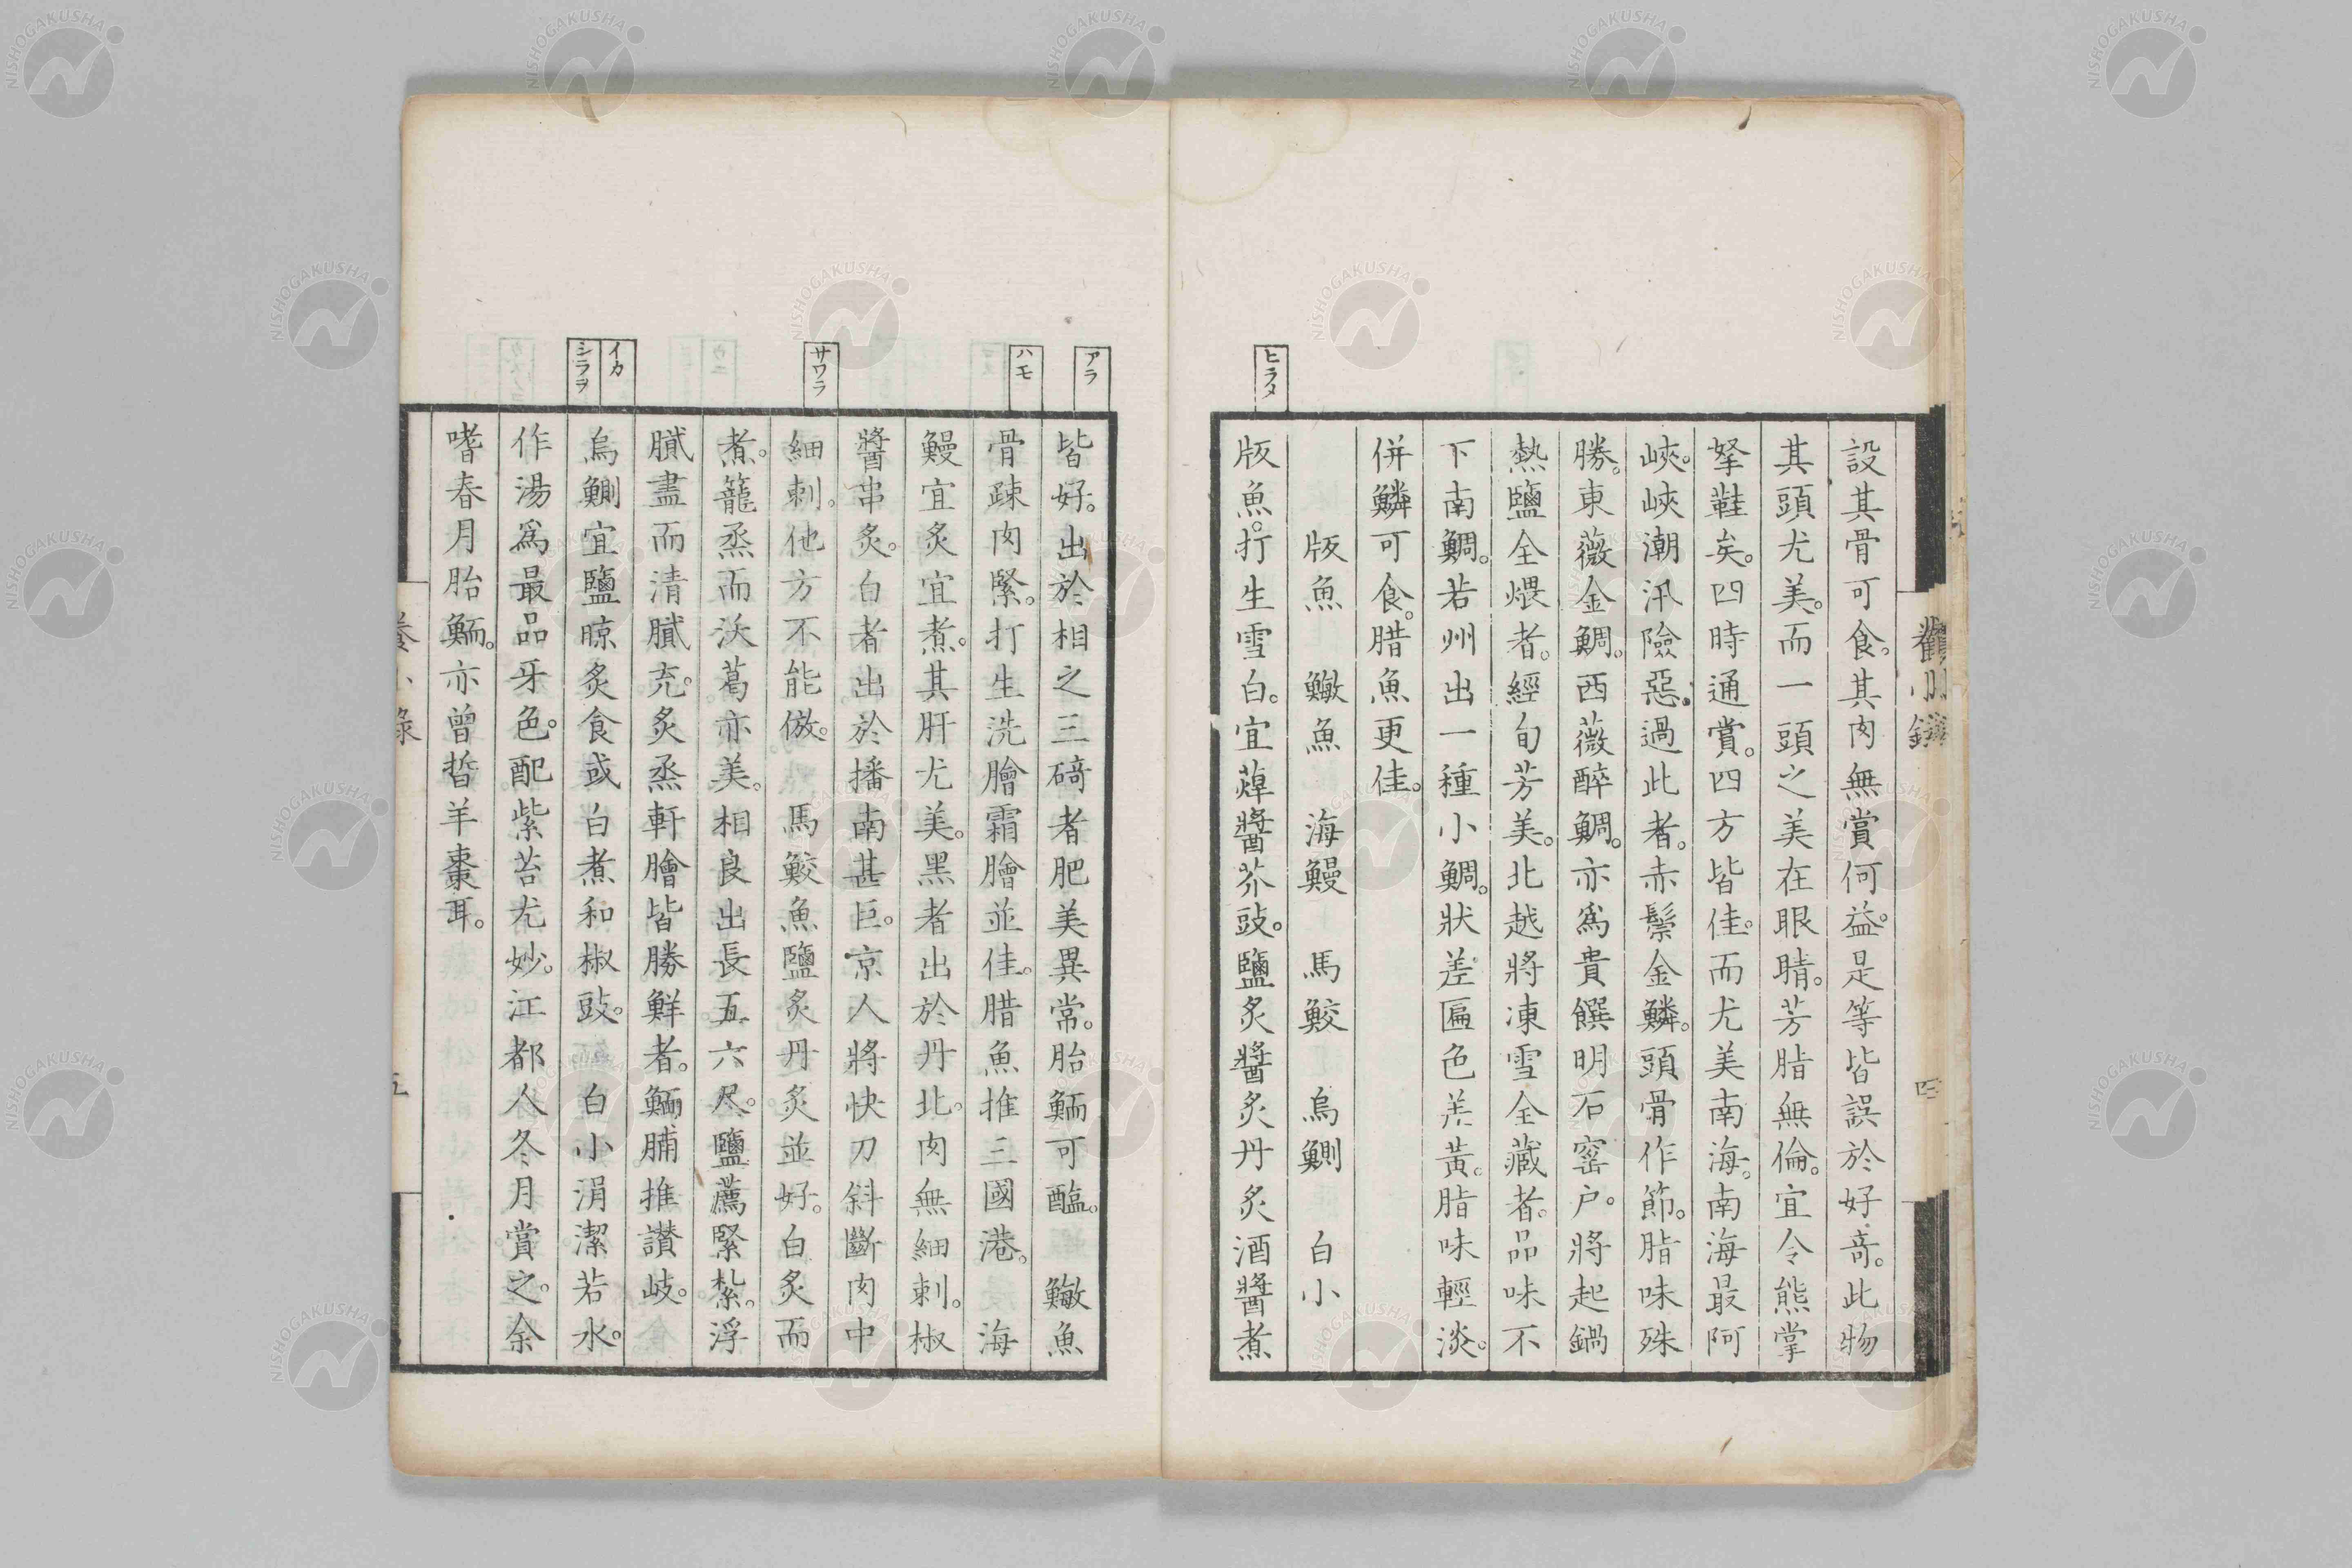 設其骨可食。其肉無賞何益。是等皆誤於好奇。此物
其頭尤美。而一頭之美在眼睛。芳脂無倫。宜令熊掌
拏鞋矣。四時通賞。四方皆佳。而尤美南海。南海最阿
峽。峽潮汛險惡。過此者。赤鬃金鱗。頭骨作節。脂味殊
勝。東薇金鯛。西薇醉鯛。亦為貴饌明石窑户。將起鍋
熱鹽全煨者。經旬芳美。北越將凍雪全藏者。品味不
下南鯛。若州出一種小鯛。狀差匾色羗黃。脂味輕淡。
併鱗可食。腊魚更佳。
版魚 鰄魚 海鰻 馬鮫 烏鰂 白小
ヒラメ
版魚。打生雪白。宜蔊醬芥豉。鹽炙醬炙丹炙酒醬煮
四
アラ
皆好。出於相之三碕者肥美異常。胎鮞可醢。 魚
ハモ
骨疎肉緊。打生洗膾霜膾並佳。腊魚推三國港。 海
鰻宜炙宜煮。其肝尤美。黑者出於丹北。肉無細刺。椒
醬串炙。白者出於播南甚巨。京人將快刀斜斷肉中
サワラ
細刺。他方不能倣。 馬鮫魚鹽炙丹炙並好。白炙而
煮。籠烝而沃葛亦美。相良出長五六尺。鹽薦緊紮。浮
膩盡而清膩充。炙烝軒膾皆勝鮮者。鮞脯推讃岐。
イカ
シラヲ
烏鰂宜鹽晾炙食或白煮和椒豉。 白小涓潔若水。
作湯為最品牙色。配紫苔尤妙。江都人冬月賞之。余
嗜春月胎鮞。亦曾晳羊棗耳。
五